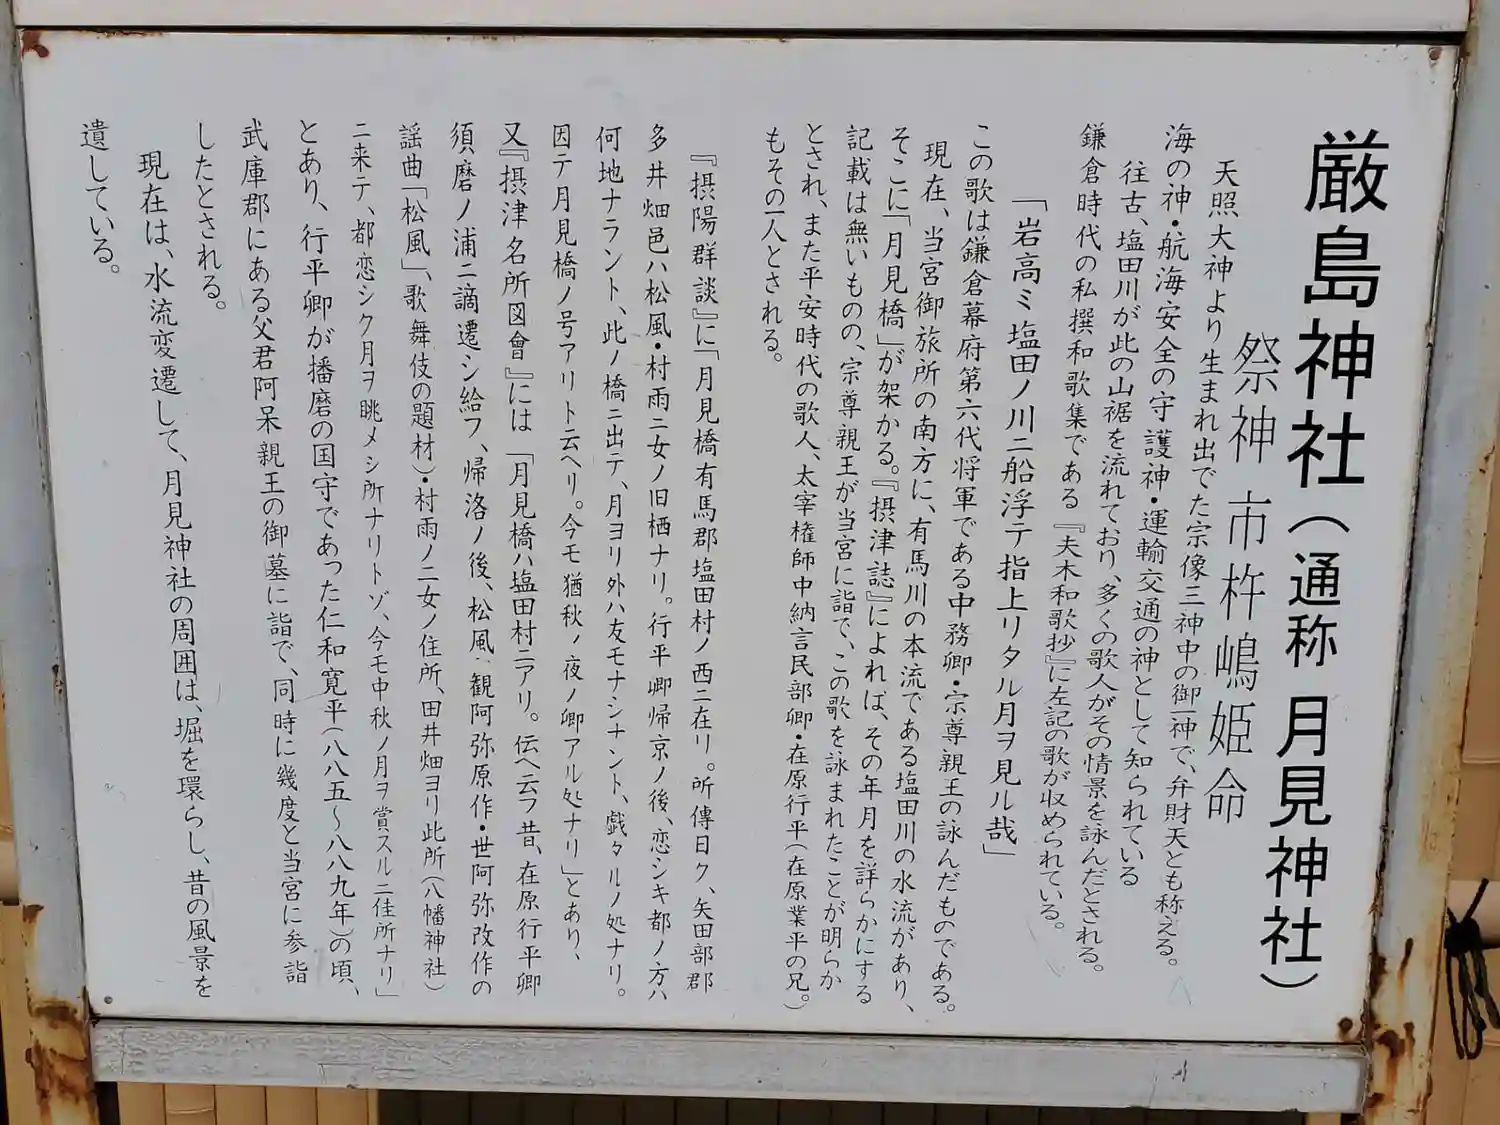 厳島神社（通称 月見神社）
祭神 市杵嶋姫命
天照大神より生まれ出でた宗像三神中の御一神で、弁財天とも称える。
海の神・航海安全の守護神・運輸交通の神として知られている
往古、塩田川が此の山裾を流れており、多くの歌人がその情景を詠んだとされる。
鎌倉時代の私撰和歌集である『夫木和歌抄』に左記の歌が収められている。
「岩高ミ塩田ノ川ニ船浮テ指上リタル月ヲ見ル哉」
この歌は鎌倉幕府第六代将軍である中務卿・宗尊親王の詠んだものである。
現在、当宮御旅所の南方に、有馬川の本流である塩田川の水流があり、
そこに「月見橋」が架かる。『摂津誌』によれば、その年月を詳らかにする
記載は無いものの、宗尊親王が当宮に詣で、この歌を詠まれたことが明らか
とされ、また平安時代の歌人、太宰権師中納言民部卿・在原行平（在原業平の兄。）
もその一人とされる。
『摂陽群談』に「月見橋有馬郡塩田村ノ西ニ在リ。所傳日ク、矢田部郡
多井畑邑ハ松風・村雨ニ女ノ旧栖ナリ。行平卿帰京ノ後、恋シキ都ノ方ハ
何地ナラント、此ノ橋ニ出テ、月ヨリ外ハ友モナシナント、戯タルノ処ナリ。
因テ月見橋ノ号アリト云ヘリ。今モ猶秋ノ夜ノ卿アル処ナリ」とあり、
又『摂津名所図會』には「月見橋ハ塩田村ニアリ。伝ヘ云フ昔、在原行平卿
須磨ノ浦ニ謫遷シ給フ、帰洛ノ後、松風（観阿弥原作・世阿弥改作の
謡曲「松風」、歌舞伎の題材）・村雨ノ二女ノ住所、田井畑ヨリ此所（八幡神社）
ニ来テ、都恋シク月ヲ眺メシ所ナリトゾ、今モ中秋ノ月ヲ賞スルニ佳所ナリ」
とあり、行平卿が播磨の国守であった仁和寛平（八八五～八八九年）の頃、
武庫郡にある父君阿呆親王の御墓に詣で、同時に幾度と当宮に参詣
したとされる。
現在は、水流変遷して、月見神社の周囲は、堀を環らし、昔の風景を
遺している。